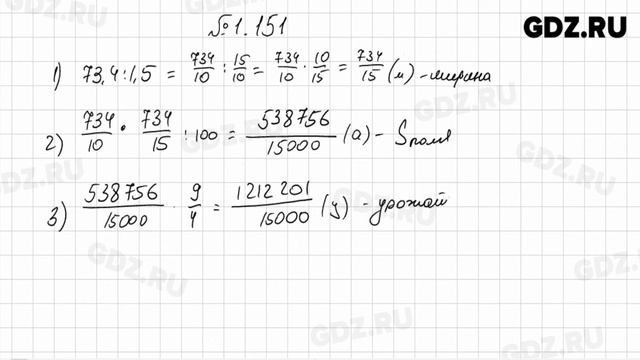 GDZ.RU
№1.151
1) 73,4:1,5 = 734/10 : 15/10 = 734/10 · 10/15 = 734/15 (м) - ширина
2) 734/10 · 734/15 : 100 = 538756/15000 (а) - Sполя
3) 538756/15000 · 9/4 = 1212201/15000 (ц) - урожай
GDZ.RU
GDZ.RU
GDZ.RU
GDZ.RU
GDZ.RU